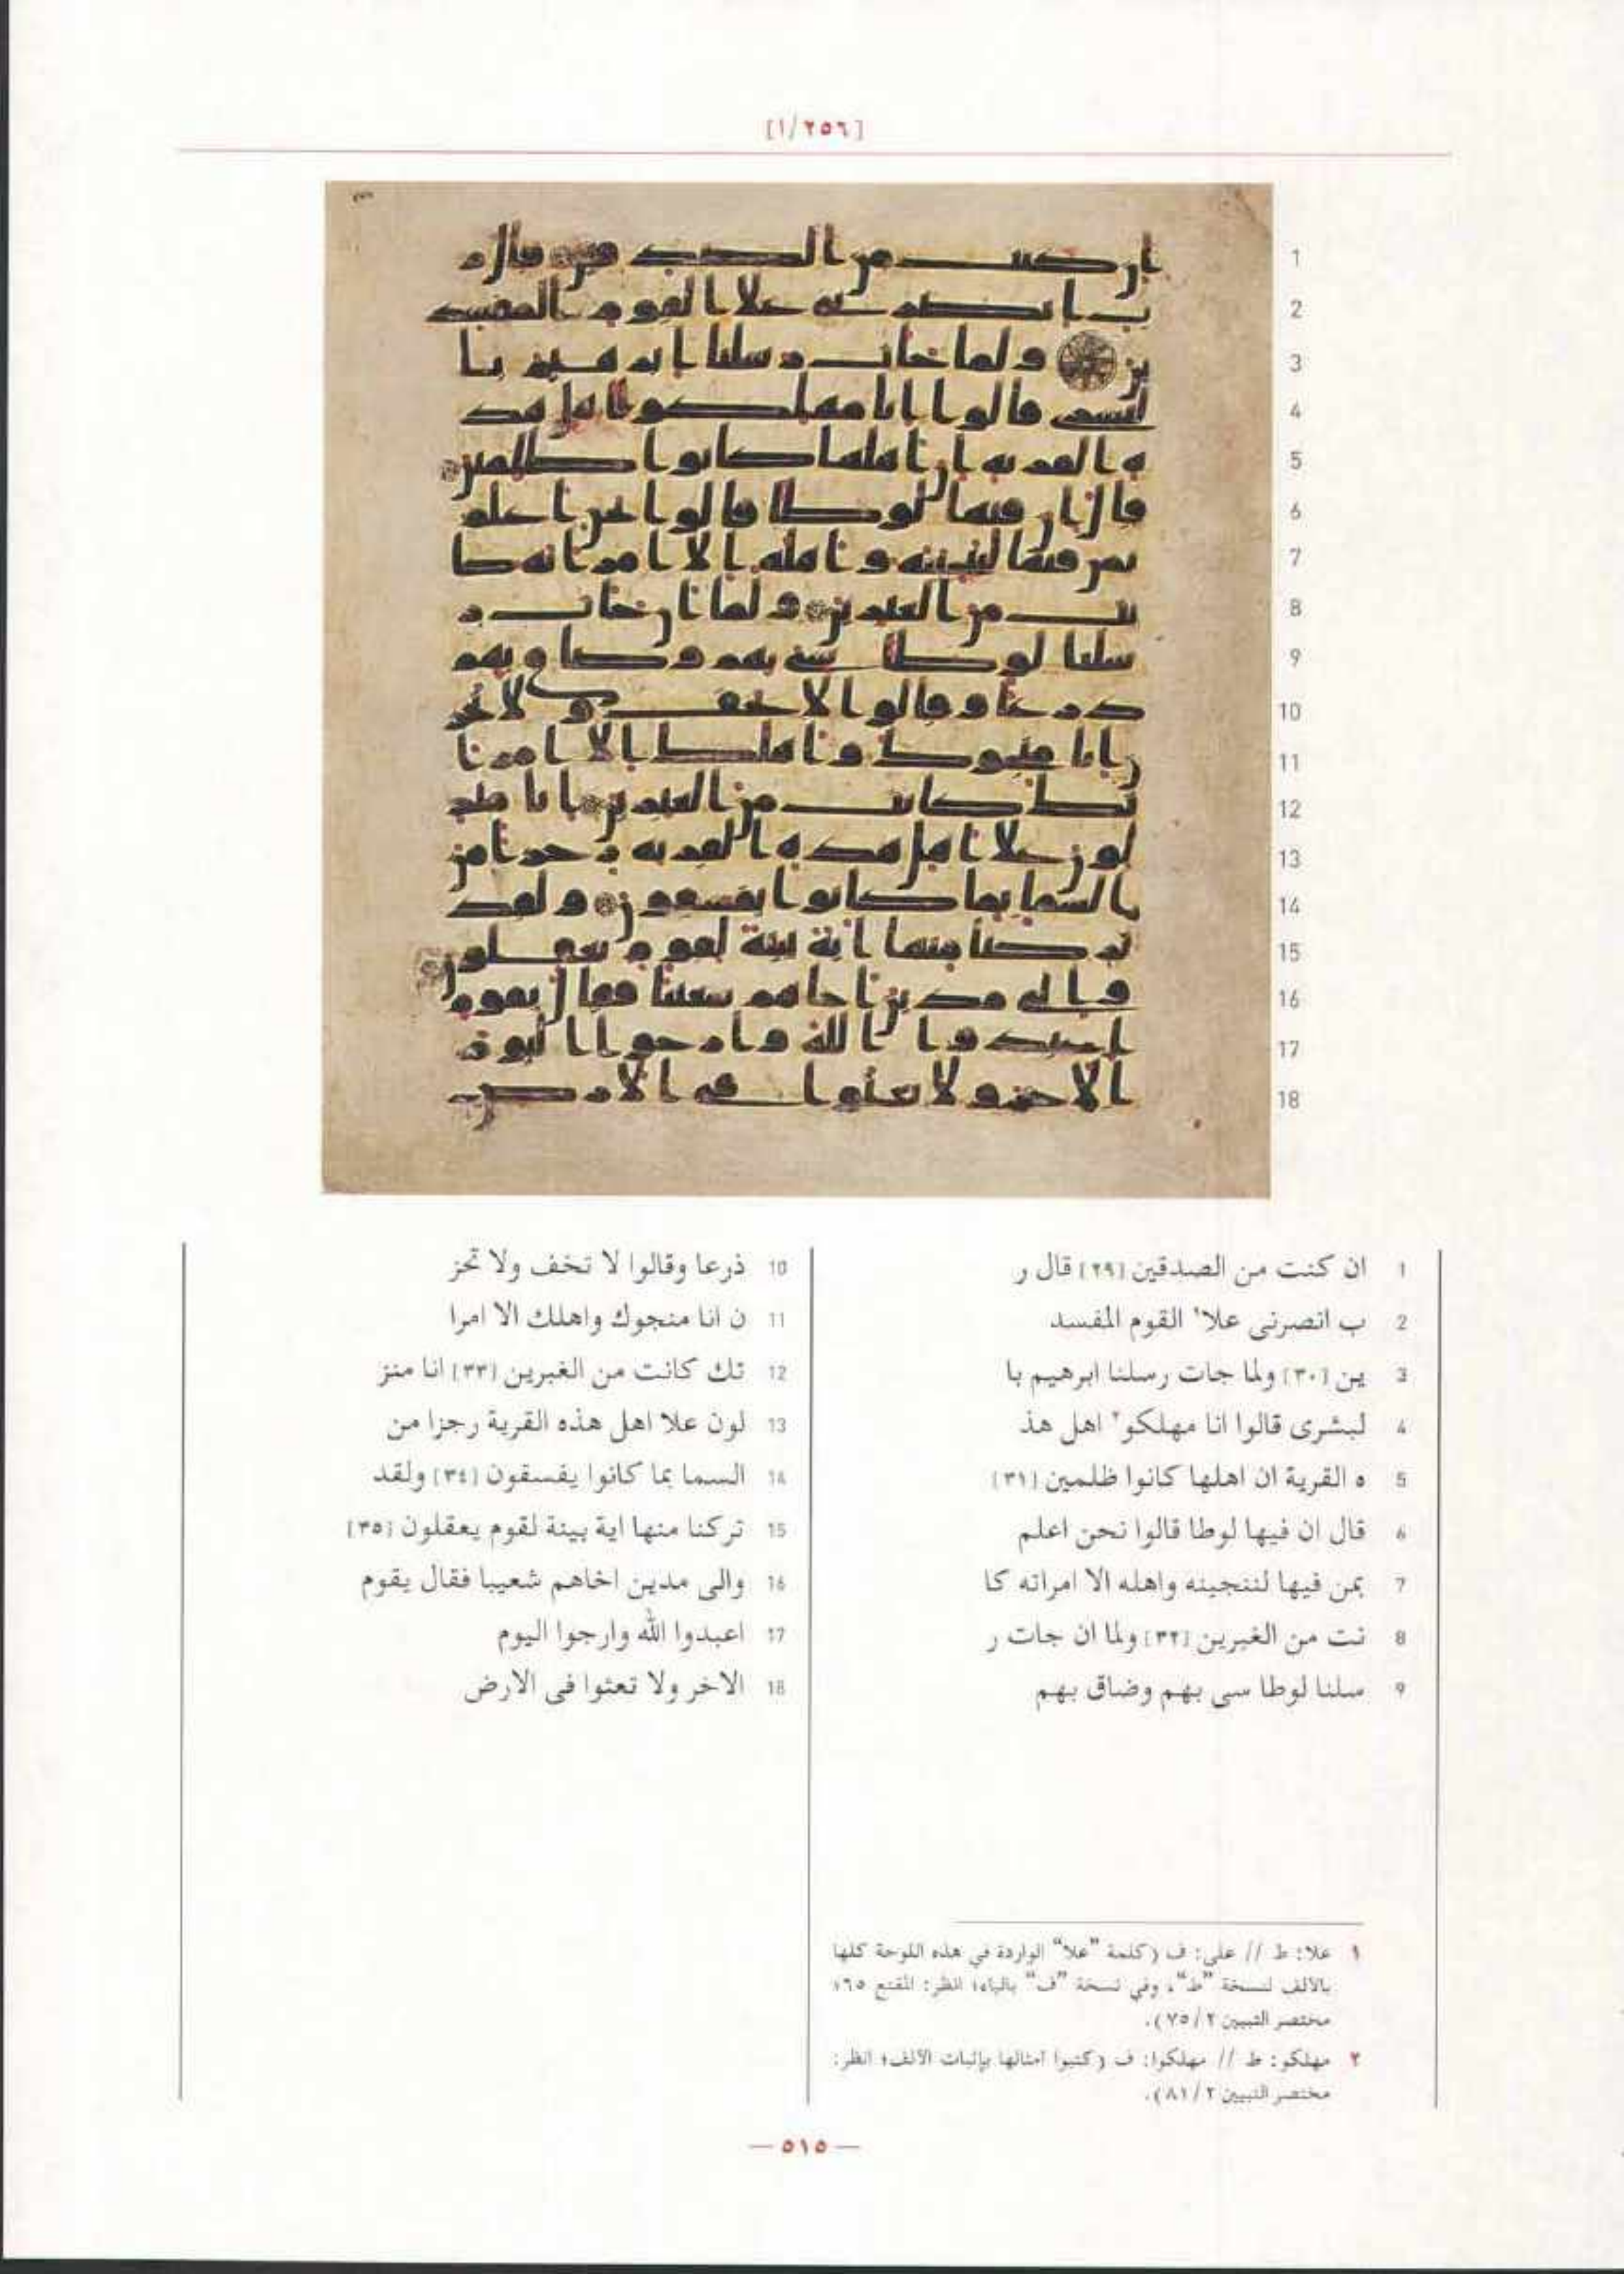 [١/٢٥٦]
1 ان كنت من الصدقين [٢٩] قال ر
2 ب انصرنى علا١ القوم المفسد
3 ين [٣٠] ولما جات رسلنا ابرهيم با
4 لبشرى قالوا انا مهلكو٢ اهل هذ
5 ه القرية ان اهلها كانوا ظلمين [٣١]
6 قال ان فيها لوطا قالوا نحن اعلم
7 بمن فيها لننجينه واهله الا امراته كا
8 نت من الغبرين [٣٢] ولما ان جات ر
9 سلنا لوطا سى بهم وضاق بهم
10 ذرعا وقالوا لا تخف ولا تحز
11 ن انا منجوك واهلك الا امرا
12 تك كانت من الغبرين [٣٣] انا منز
13 لون علا اهل هذه القرية رجزا من
14 السما بما كانوا يفسقون [٣٤] ولقد
15 تركنا منها اية بينة لقوم يعقلون [٣٥]
16 والى مدين اخاهم شعيبا فقال يقوم
17 اعبدوا الله وارجوا اليوم
18 الاخر ولا تعثوا فى الارض
١ علا: ط // على: ف (كلمة "علا" الواردة في هذه اللوحة كلها
بالألف لنسخة "ط"، وفي نسخة "ف" بالياء؛ انظر: المقنع ٦٥؛
مختصر التبيين ٢/ ٧٥).
٢ مهلكو: ط // مهلكوا: ف (كتبوا أمثالها بإثبات الألف؛ انظر:
مختصر التبيين ٢/ ٨١).
— ٥١٥ —